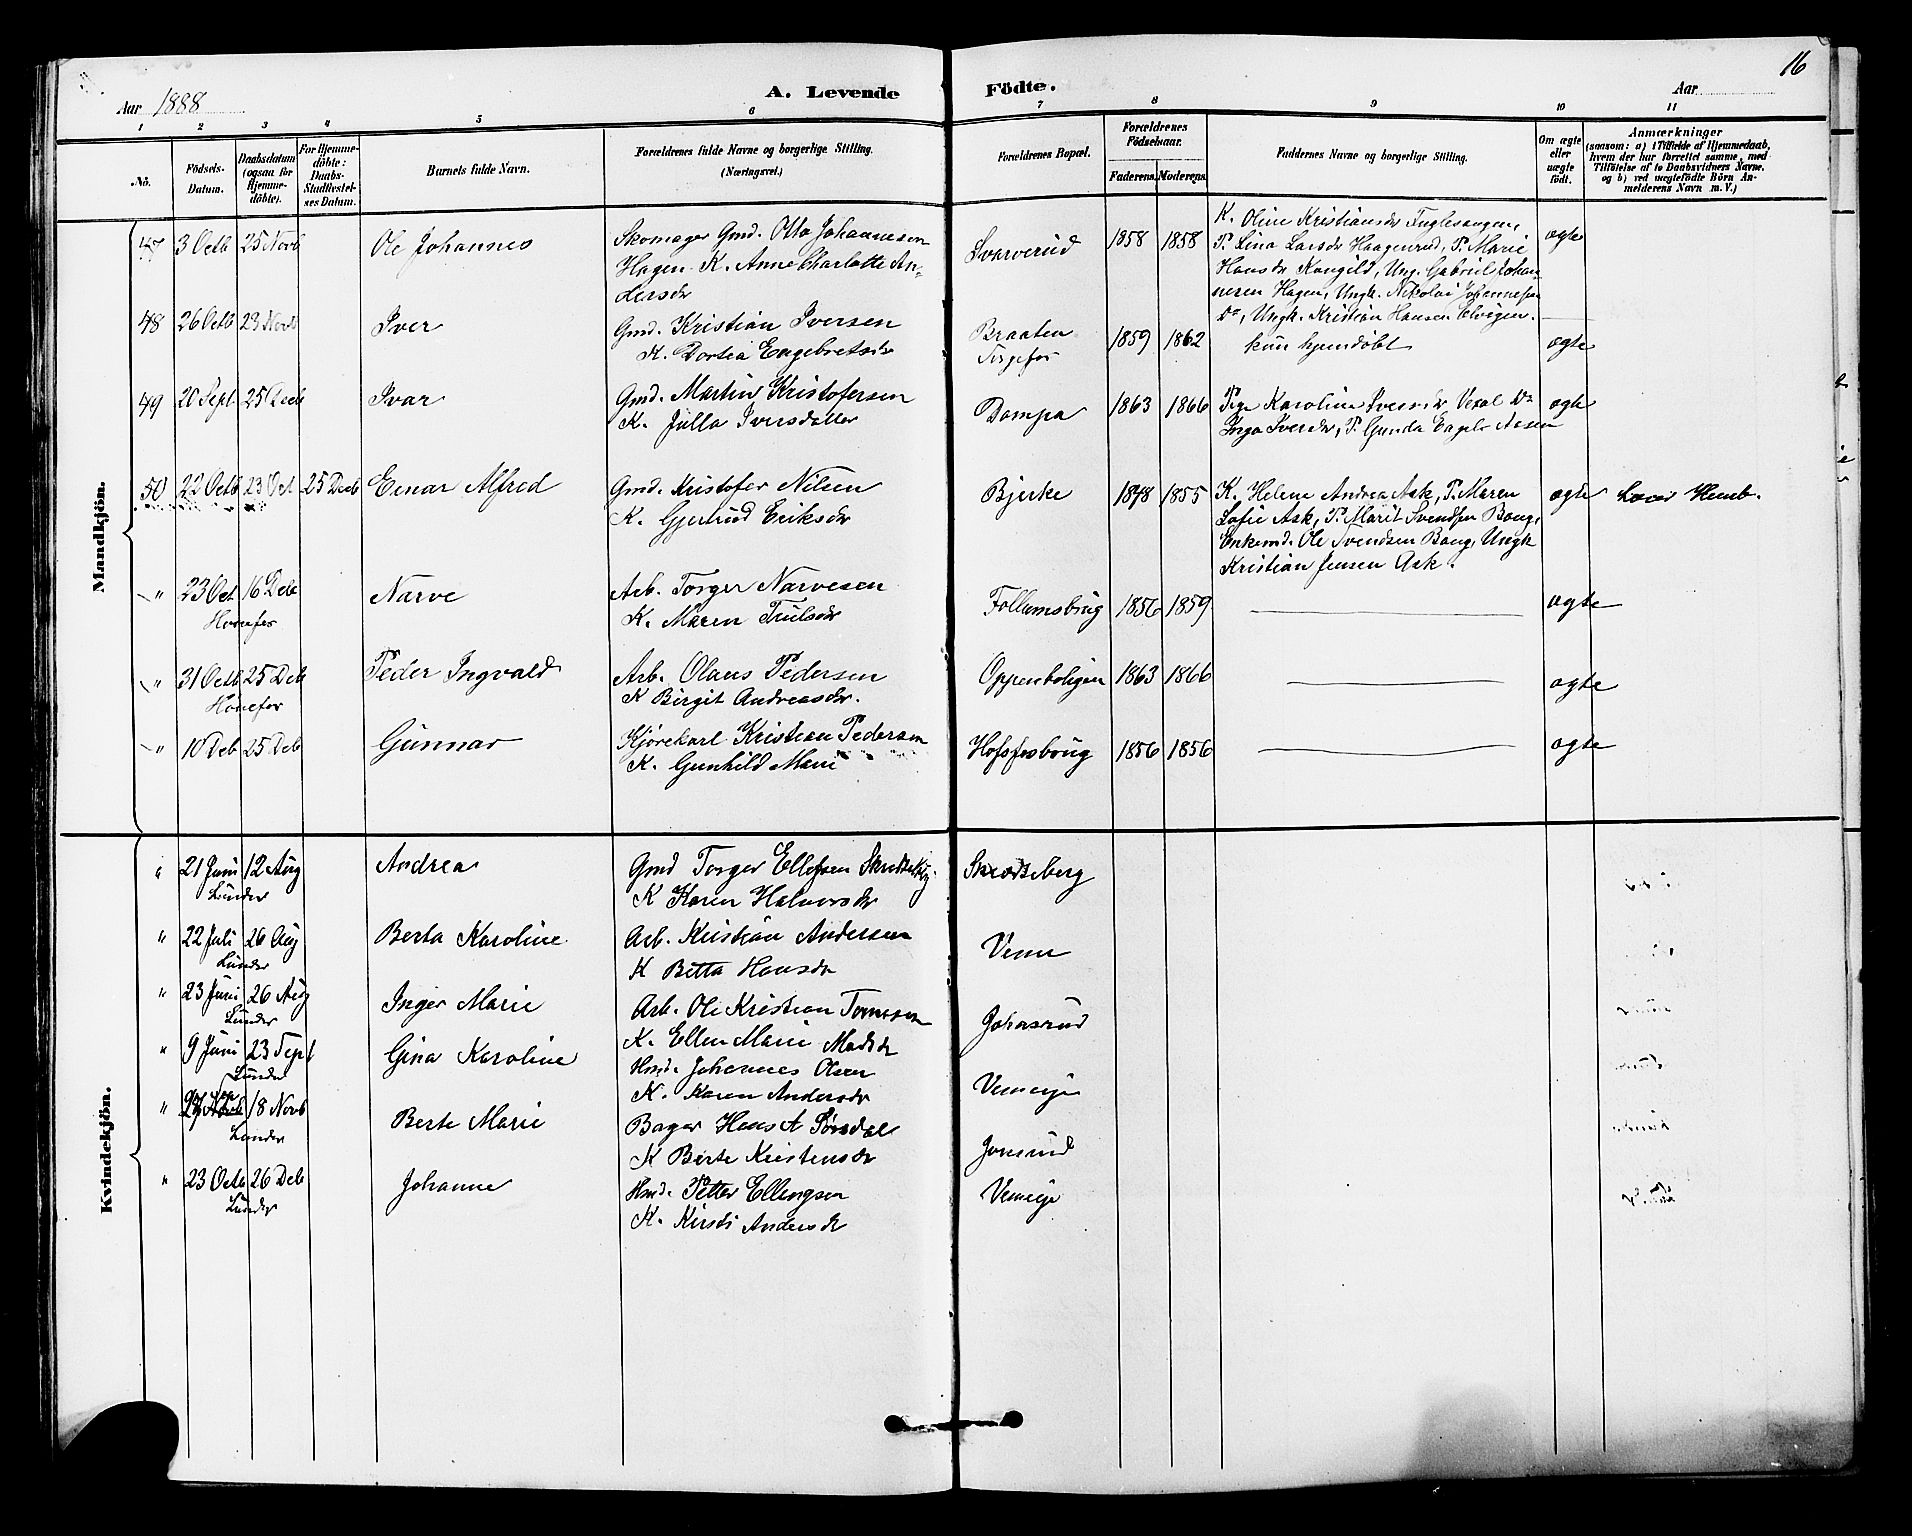 16
Aar 1888
A. Levende Födte.
Aar
1 2 3 4 5 6 7 8 9 10 11
No.
Födsels-Datum.
Daabsdatum (ogsaa for Hjemme-döbte).
For Hjemme-döbte: Daabs-Stadfæstel-ses Datum.
Barnets fulde Navn.
Forældrenes fulde Navne og borgerlige Stilling. (Næringsvei.)
Forældrenes Bopæl.
Forældrenes Födselsaar.
Faderens. Moderens.
Faddernes Navne og borgerlige Stilling.
Om ægte eller uægte födt.
Anmærkninger
(saasom: a) i Tilfælde af Hjemmedaab, hvem der har forrettet samme, med Tilföielse af to Daabsvidners Navne, og b) ved uægtefödte Börn An-melderens Navn m. V.)
Mandkjön.
47 3 Octb 25 Novb Ole Johannes Skomager Gmd. Otto Johannesen Svarverud 1858 1858 K. Oline Kristiansdr Fuglesangen, ægte
Hagen K. Anne Charlotte An- P. Lina Larsdr Haagenrud, P. Marie
dersdr Hansdr Kongild, Ung. Gabriel Johan
nesen Hagen, Ungk. Nikolai Johannesen
Do, Ungk. Kristian Hansen Elvigen.
48 26 Octb 23 Novb Iver Gmd. Kristian Iversen Braaten 1859 1862 kun hjemdöbt ægte
K. Dortea Engebretsdr
49 20 Sept 25 Decb Ivar Gmd. Martin Kristofersen Dompa 1863 1866 Pige Karoline Iversdr Vexal Do ægte
K. Julla Iversdatter Inga Iversdr, P. Gunda Engebr Aasen
50 22 Octb 23 Oct 25 Decb Einar Alfred Gmd. Kristofer Nilsen Bjerke 1848 1855 K. Helene Andrea Ask, P. Maren ægte
K. Gjertrud Eriksdr Sofie Ask, P. Marit Svendsen Boug,
Enkemd. Ole Svendsen Boug, Ungk
Kristian Jensen Ask.
" 23 Oct 16 Deb Narve Arb. Torger Narvesen Follumsbrug 1856 1859 ægte
Hönefos K. Maren Trulsdr
" 31 Octb 25 Deb Peder Ingvald Arb. Olaus Pedersen Oppenboligen 1863 1866 ægte
Hönefos K Birgit Andreasdr.
" 10 Deb 25 Deb Gunnar Kjörekarl Kristian Pedersen Hofsfosbrug 1856 1856 ægte
K. Gunhild Marie
Kvindekjön.
" 21 Juni 12 Aug Andrea Gmd Torger Ellefsen Skredseberg
Lunder K Karen Halvorsdr
" 22 Juli 26 Aug Berta Karoline Arb. Kristian Andersen Veme
Lunder K Betta Hansdr
" 23 Juni 26 Aug Inger Marie Arb. Ole Kristian Tomesen Johnsrud
Lunder K. Ellen Marie Madsdr
" 9 Juni 23 Sept Gina Karoline Hmd. Johannes Olsen Vemeeje
Lunder K. Karen Andersdr
" 18 Novb Berte Marie Bager Hans A Sörsdal Jonsrud
Lunder K Berte Kristensdr
" 23 Octb 26 Deb Johanne Hmd. Petter Ellingsen Vemeeje
Lunder K. Kirsti Andersdr